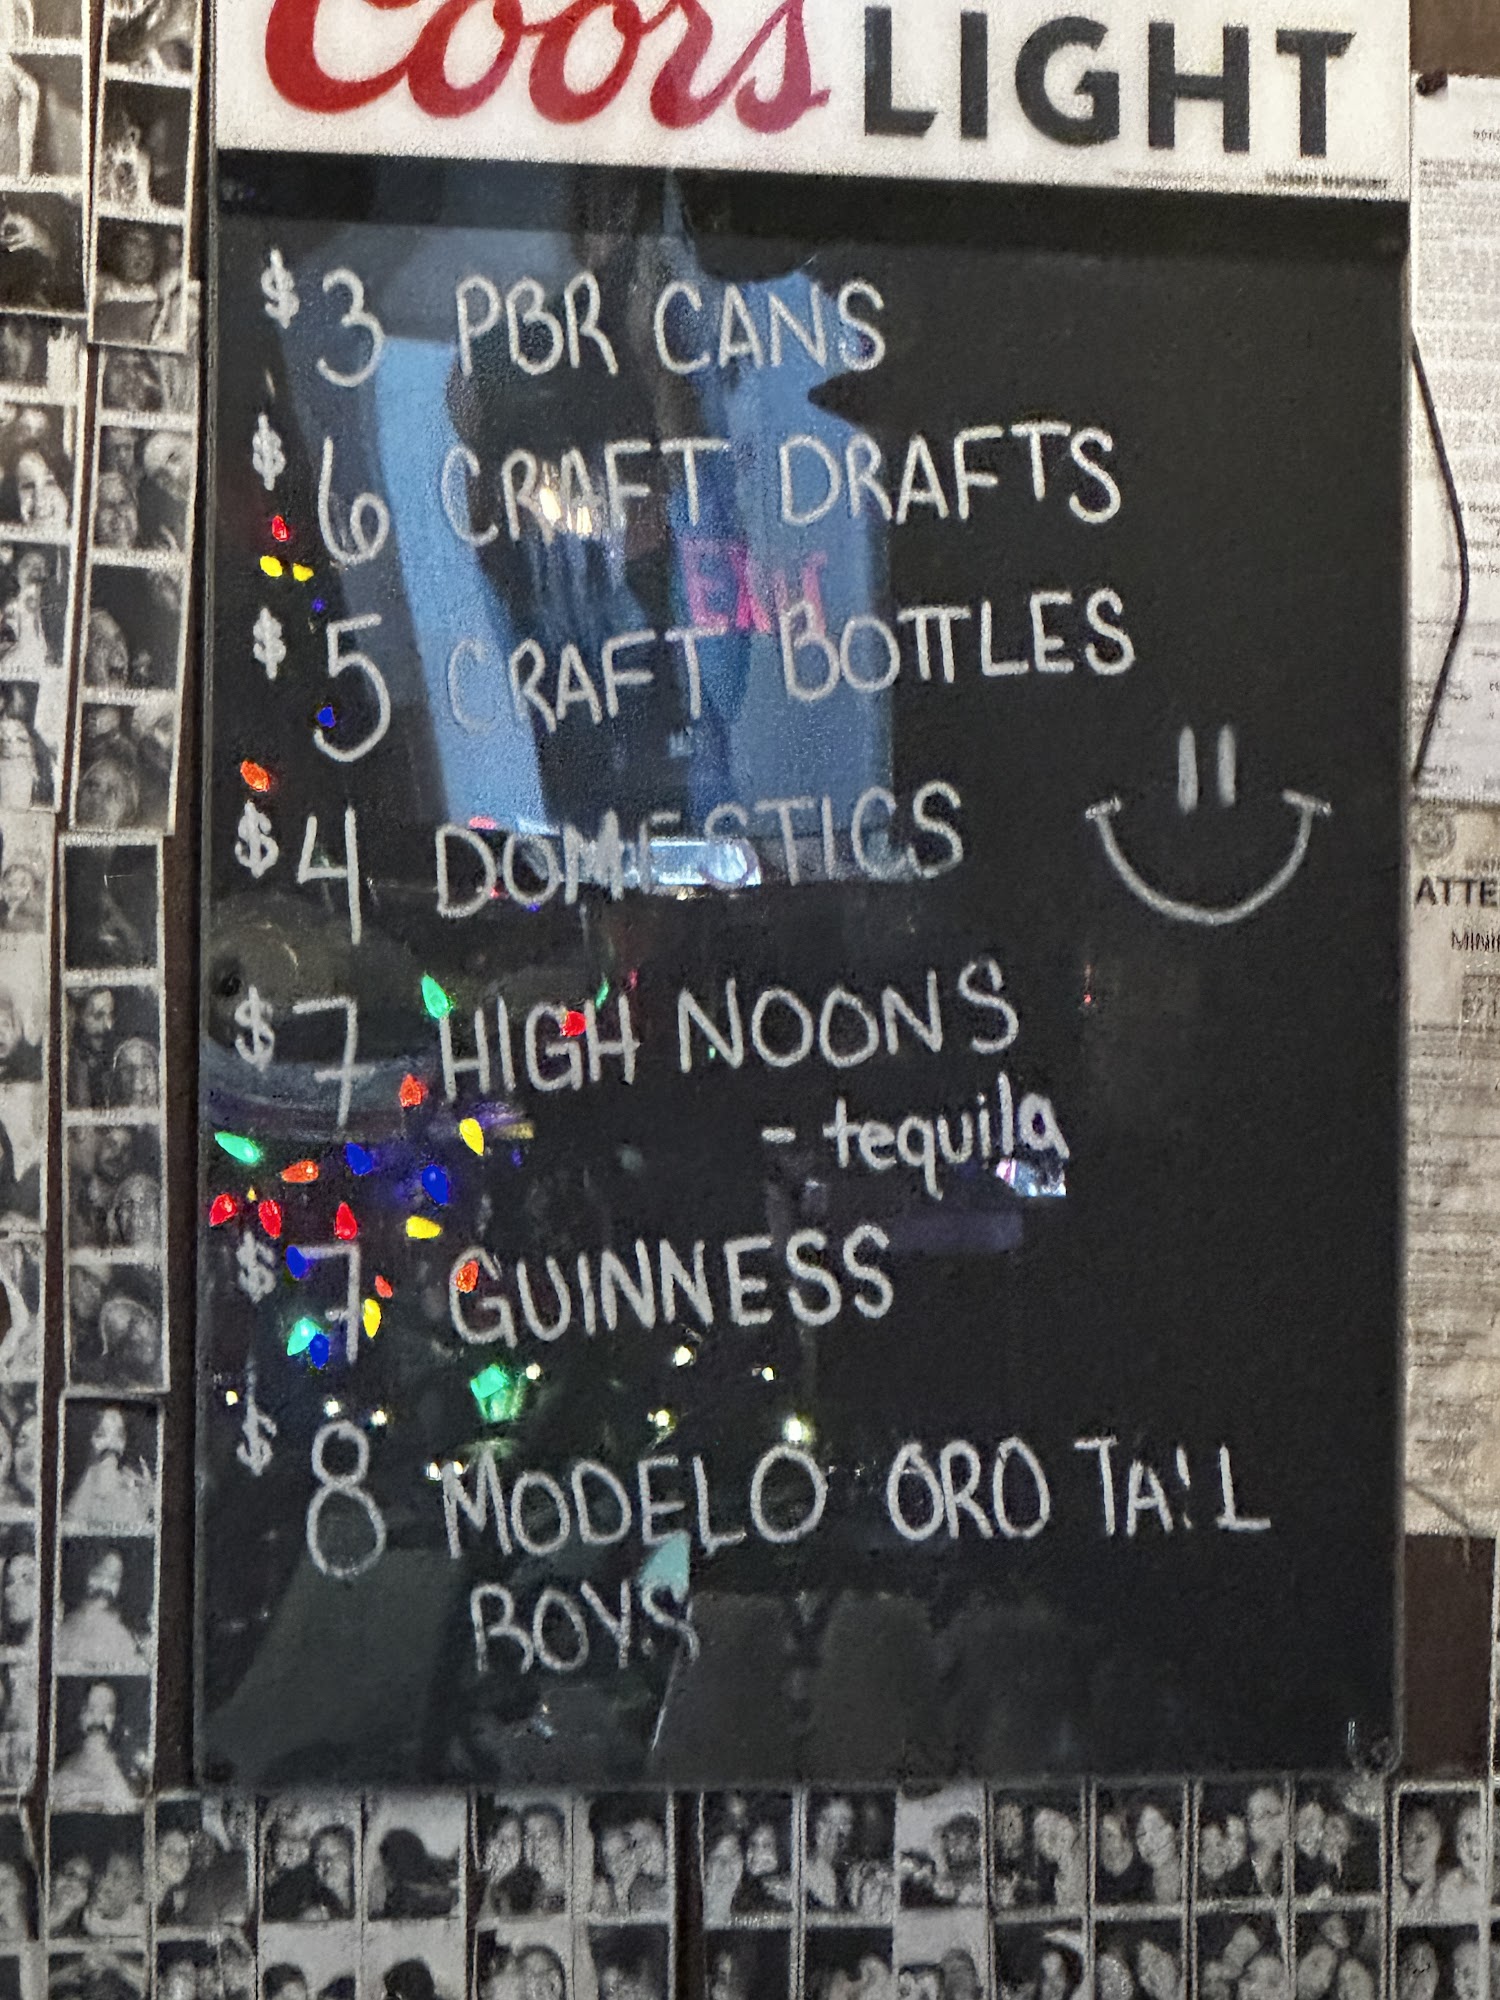 Coors LIGHT
$3 PBR CANS
$6 CRAFT DRAFTS
EXIT
$5 CRAFT BOTTLES
$4 DOMESTICS
$7 HIGH NOONS
- tequila
$7 GUINNESS
$8 MODELO ORO TALL
BOYS
ATTE
MINI